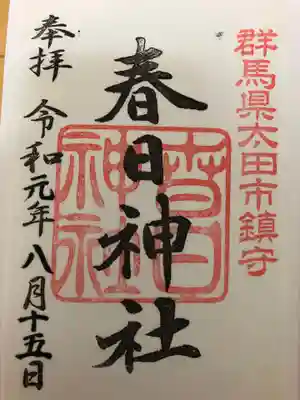 群馬県太田市鎮守
春日神社
春日
神社
奉拝 令和元年八月十五日